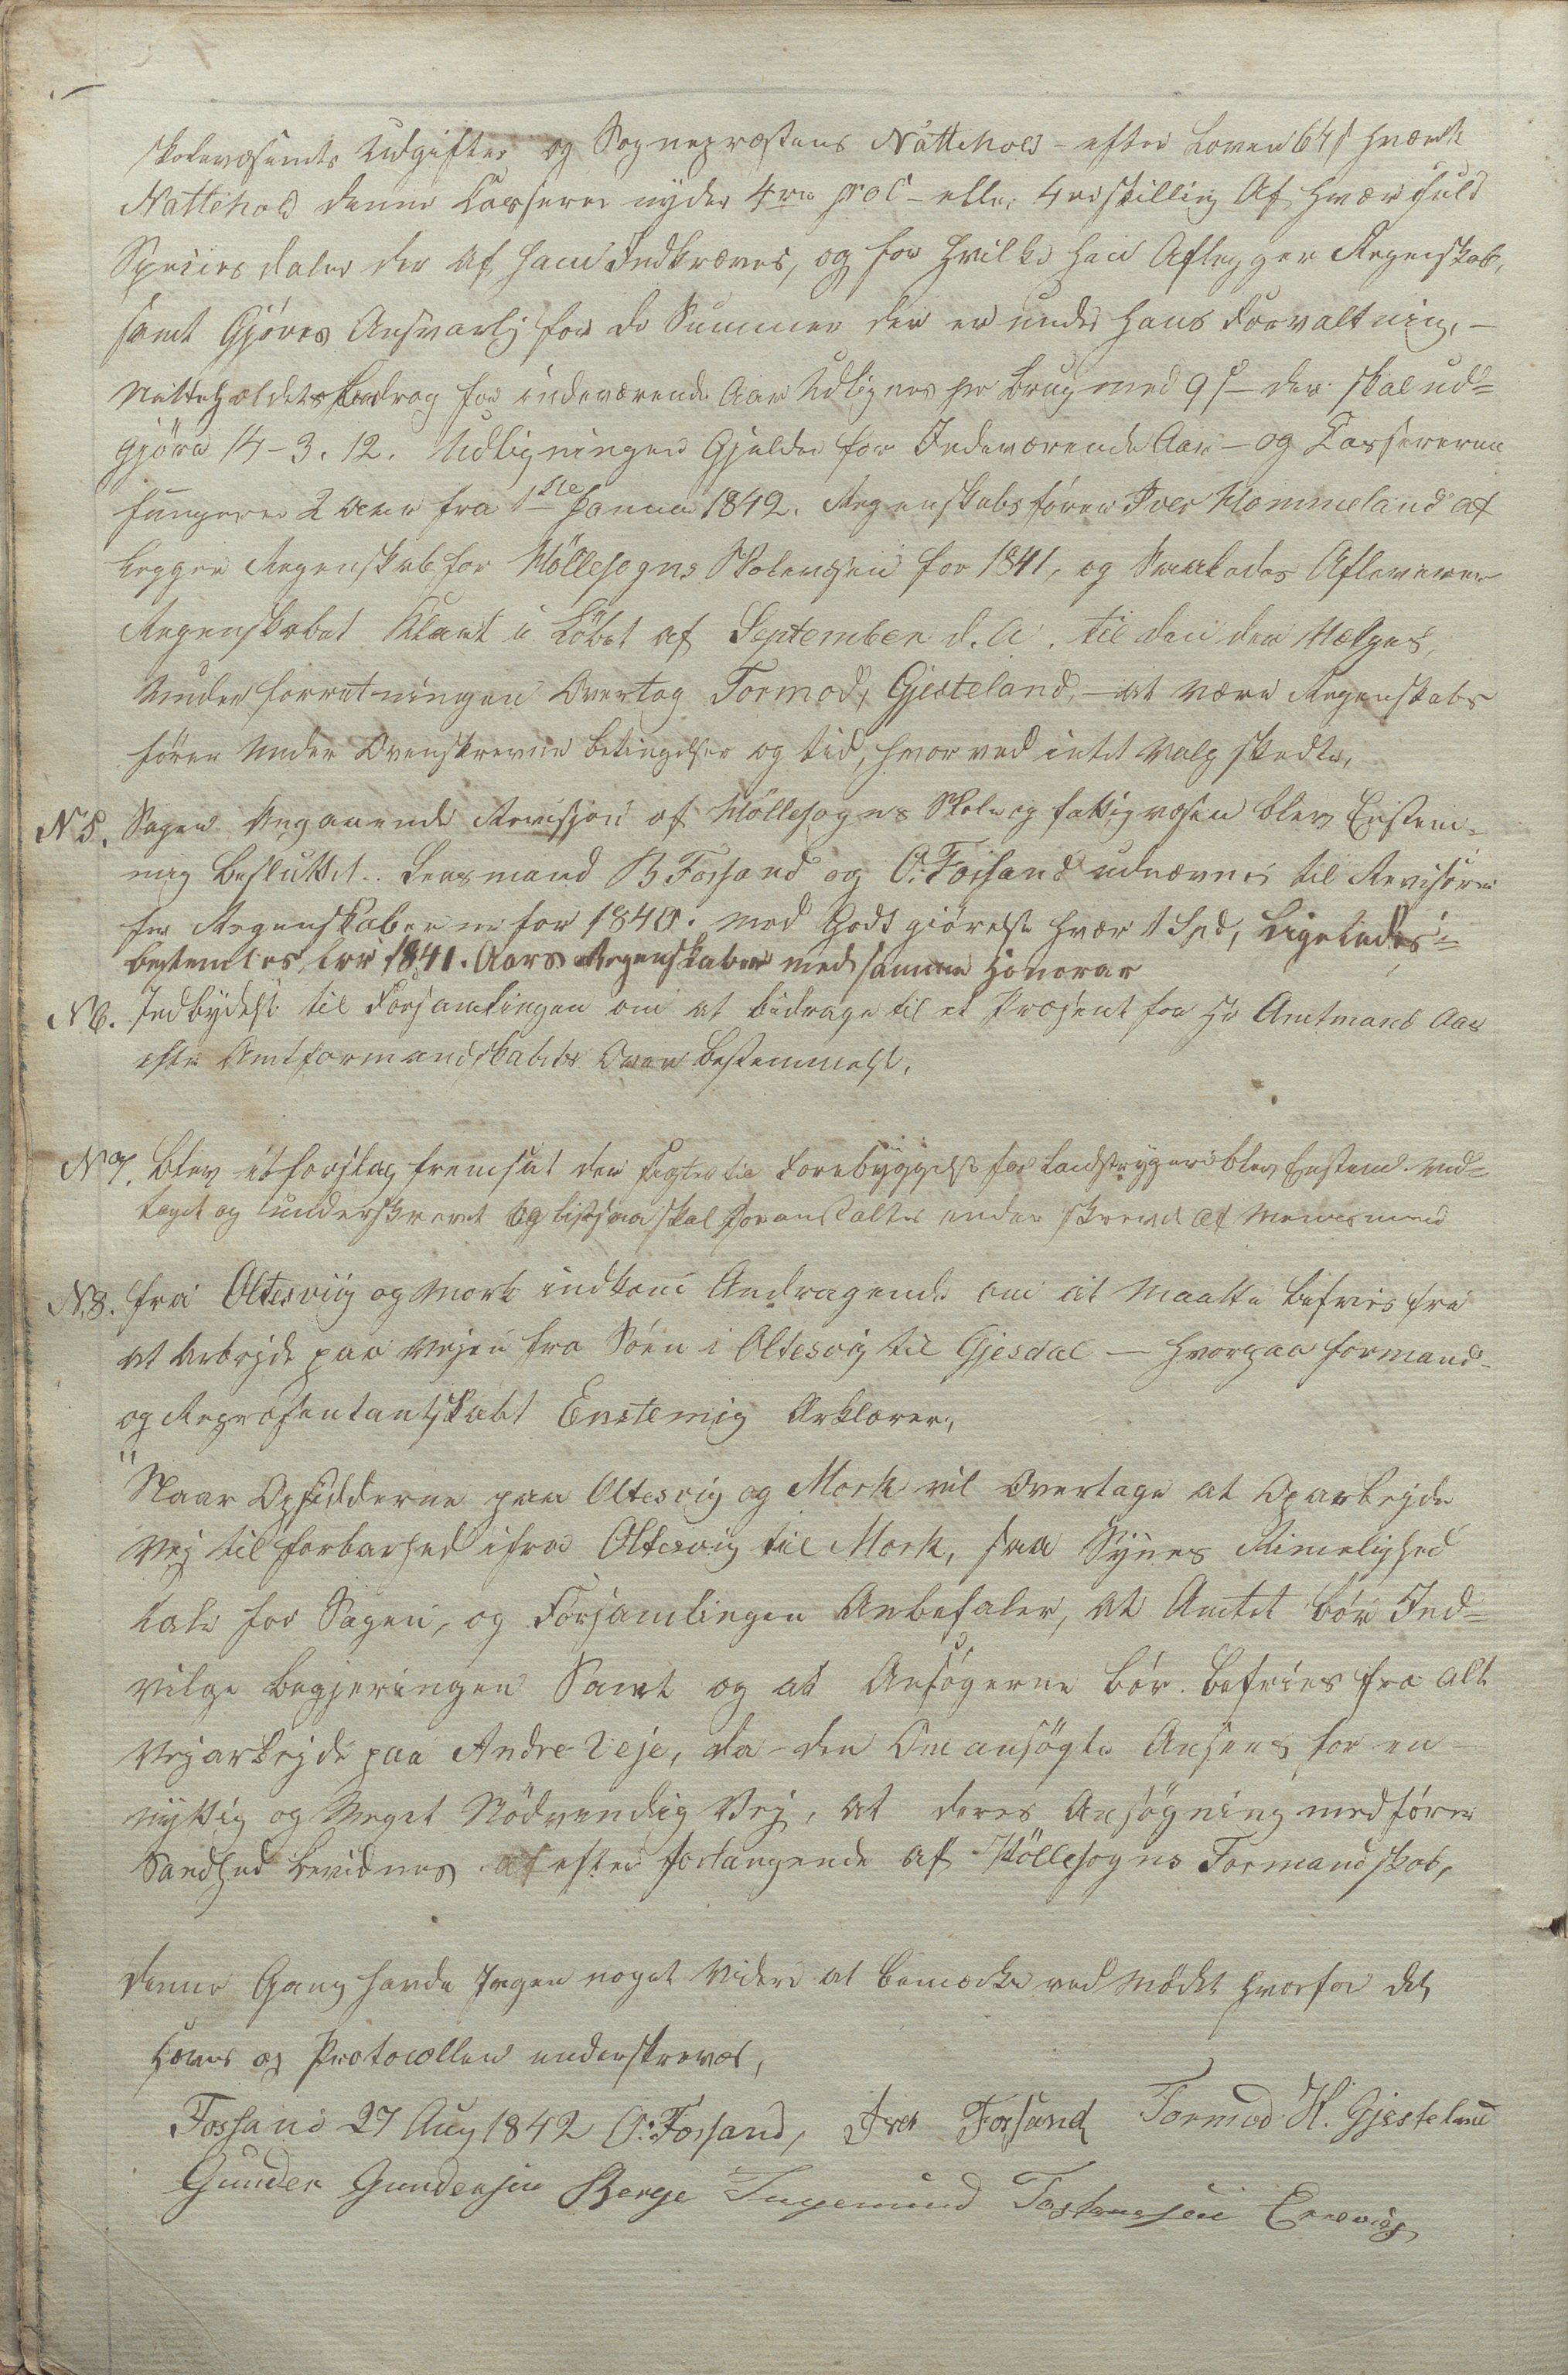 Skolevæsenets Udgifter og Sognepræstens Natteholds – efter Loven 64 s hværdt
Nattehold denne Casserer nyder 4re pro C – eller 4re skilling Af hvær fuld
Speciesdaler der af ham Indkræves, og for hvilke han Aflegger Regenskab,
samt Gjöres Ansvarlig for de Summer der er under hans Forvaltning, –
Natteholdets Bedrag for indeværende Aar Udlignes pr Brug med 9 s – der skal ud=
gjöre 14 – 3. 12. Udligningen Gjelder for Indeværende Aar – og Cassereren
fungerer 2 aar fra 1ste Januar 1842. Regenskabsförer Iver Hommeland af
legger Regenskab for Höllesogns Skolevæsen for 1841, og Saaledes Afleverer
Regenskabet Klart i Löbet af September d. A. til den der Vælges,
Under forretningen Overtog Tormod Gjesteland, – at være Regenskabs
förer Under Ovenskrevne betingelser og tid, hvorved intet Valg skedte,
N 5. Sagen Angaaende Revisjon af Höllesogns Skole og fattigvæsen blev Enstem=
mig besluttet. Lensmand B Fossand og O. Fossand udnævnes til Revisorer
for Regenskaberne for 1840. med Godtgiörelse hvær 1 Spd, Ligeledes=
bestemtes for 1841. Aars Regenskaber med samme Honorar
N 6. Indbydelse til Forsamlingen om at bidrage til et Præsent for Hr Amtmand Aas
efter Amtformandskabets Over bestemmelse.
N 7. blev et forslag fremsat der sigter til Forebyggelse for Landstrygere blev Enstem. ved=
taget og underskrevet og ligesaa skal foranstaltes under skrevet af Menigmand
N 8. fra Oltesviig og Mork indkom Andragende om at Maatte befries fra
at arbejde paa Vejen fra Söen i Oltesvig til Gjesdal – hvorpaa formand=
og Repræsentantskabet Enstemig Erklærer,
"Naar Opsidderne paa Oltesvig og Mork vil Overtage at Oparbejde
Vej til farbarhed ifra Oltesvig til Mork, saa Synes Rimelighed
tale for Sagen, og Forsamlingen Anbefaler, at Amtet bör Ind=
vilge begjeringen Samt og at Ansögerne bör befries fra alt
Vejarbejde paa Andre Veje, da – den Omansögte Ansees for en –
nyttig og Meget Nödvendig Vej, at deres Ansögning medförer
Sandhed bevidnes at efter forlangende af Höllesogns Formandskab,
denne Gang havde Ingen noget Videre at bemærke ved Mödet hvorfor det
Hæves og Protocollen underskreves,
Fossand 27 Aug 1842 O. Fossand, Iver Fossand Tormod H. Gjesteland
Gunder Gundersen Berge Ingemund Tostensen